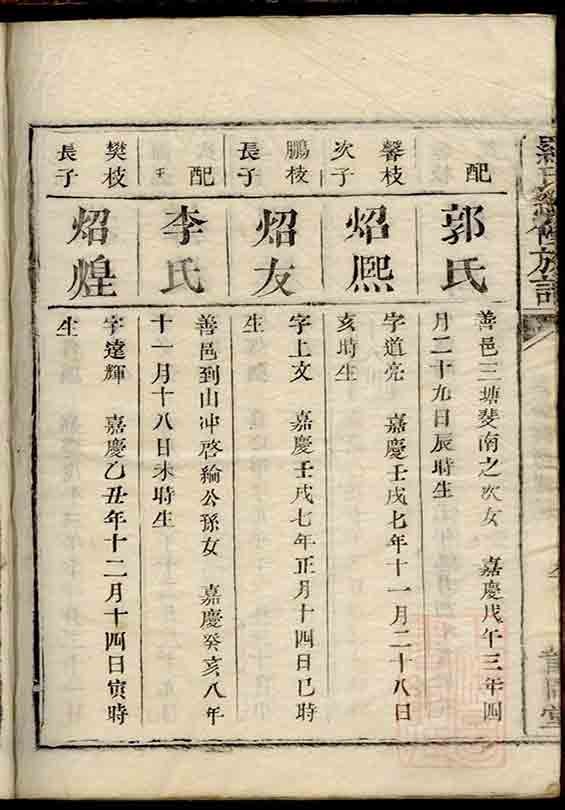 羅氏續修族譜
配
郭氏
善邑三塘斐南之次女　嘉慶戊午三年四
月二十九日辰時生
馨枝
次子
炤熙
字道亮　嘉慶壬戌七年十一月二十八日
亥時生
鵬枝
長子
炤友
字上文　嘉慶壬戌七年正月十四日巳時
生
配
李氏
善邑到山冲啓綸公孫女　嘉慶癸亥八年
十一月十八日未時生
樊枝
長子
炤煌
字達輝　嘉慶乙丑年十二月十四日寅時
生